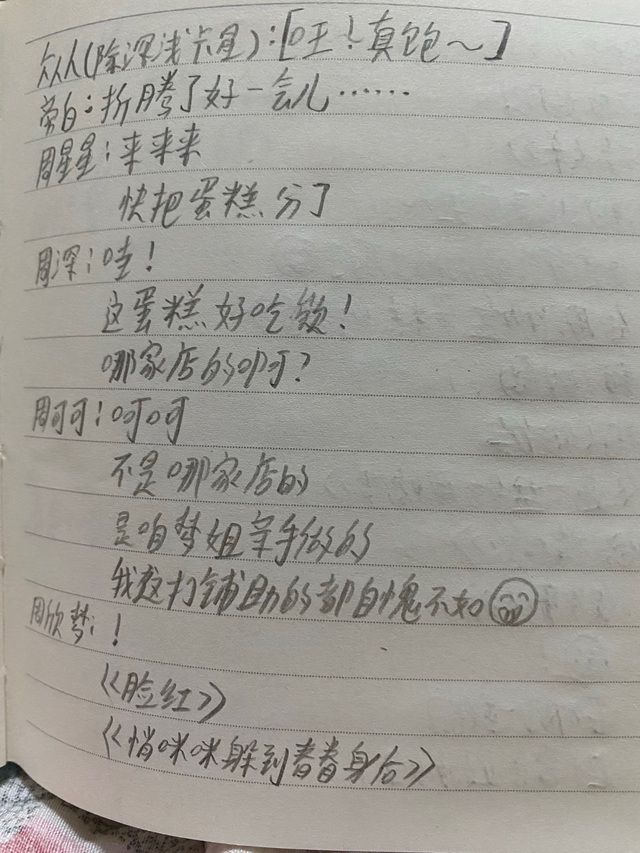 众人(除深浅卡星):[旺!真饱~]
旁白:折腾了好一会儿……
周星星:来来来
快把蛋糕分了
周深:哇!
这蛋糕好吃锁!
哪家店的啊?
周可可:呵呵
不是哪家店的
是咱梦姐亲手做的
我这打辅助的都自愧不如
周欣梦:!
《脸红》
《悄咪咪躲到春春身后》